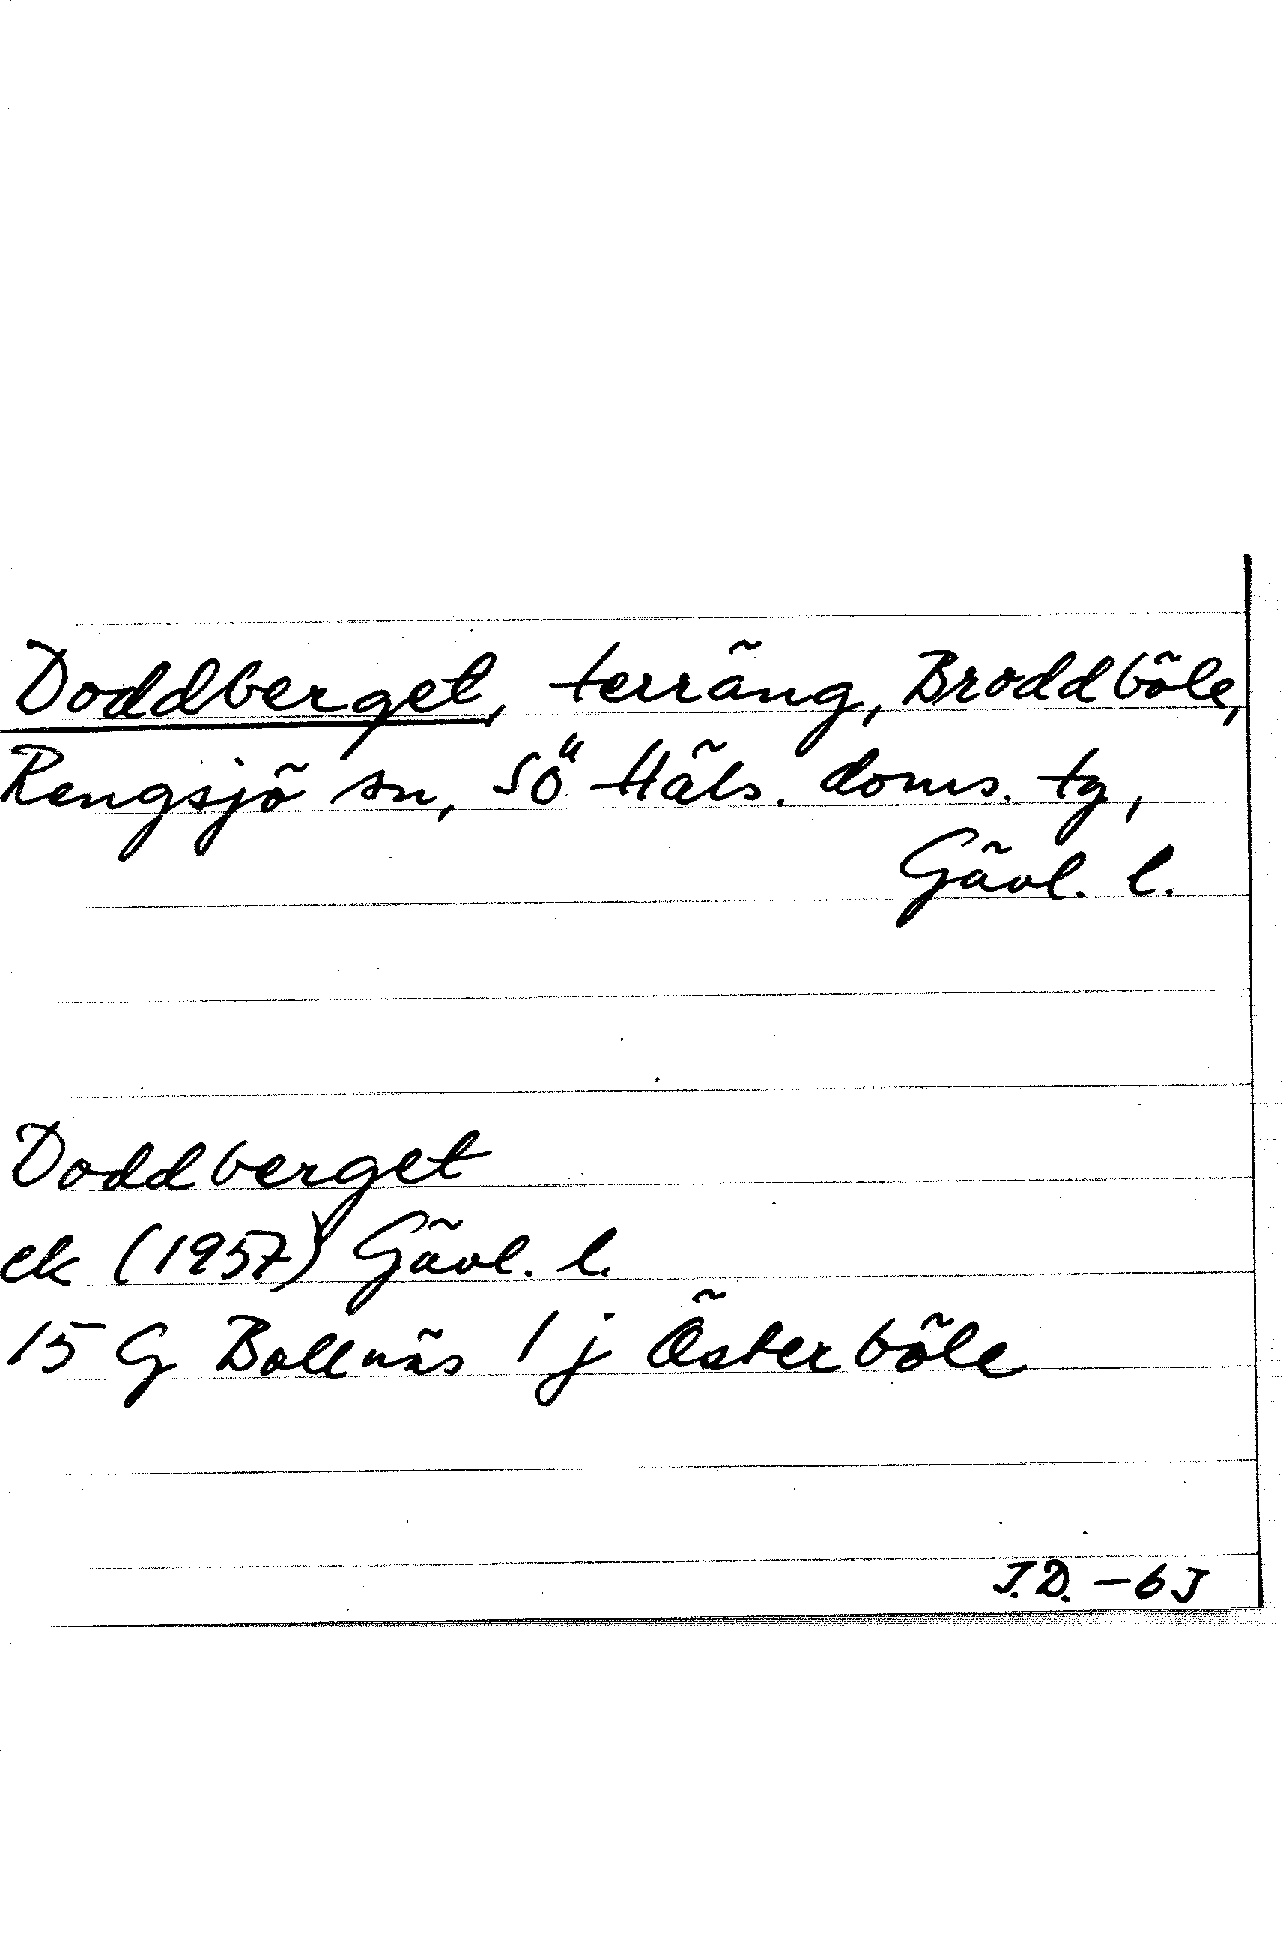 Doddberget, terräng, Broddböle,
Rengsjö sn, SÖ Häls. doms. tg,
Gävl. l.
Doddberget
ek (1957) Gävl. l.
15 G Bollnäs 1 j Österböle
J.D. -65